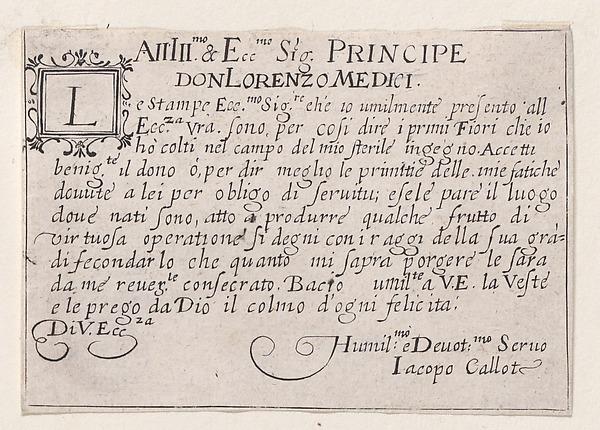 All Ill.mo & Ecc.mo Sig. PRINCIPE
DON LORENZO MEDICI.
Le Stampe Ecc.mo Sig.re ch'è io umilmente presento all
Ecc.za Vrã. sono, per cosi dire i primi Fiori che io
ho colti nel campo del mio sterile ingegno. Accetti
benig.te il dono ò, per dir meglio le primitie delle mie fatiche
douute a lei per obligo di seruitu; e se le pare il luogo
doue nati sono, atto a produrre qualche frutto di
virtuosa operatione si degni con i raggi della sua grà=
di fecondarlo che quanto mi saprà porgere le sarà
da me reuer.te consecrato. Bacio umil.te a V.E. la Veste
e le prego da Dio il colmo d'ogni felicita.
Di V. Ecc.za
Humil.mo e Deuot.mo Seruo
Iacopo Callot